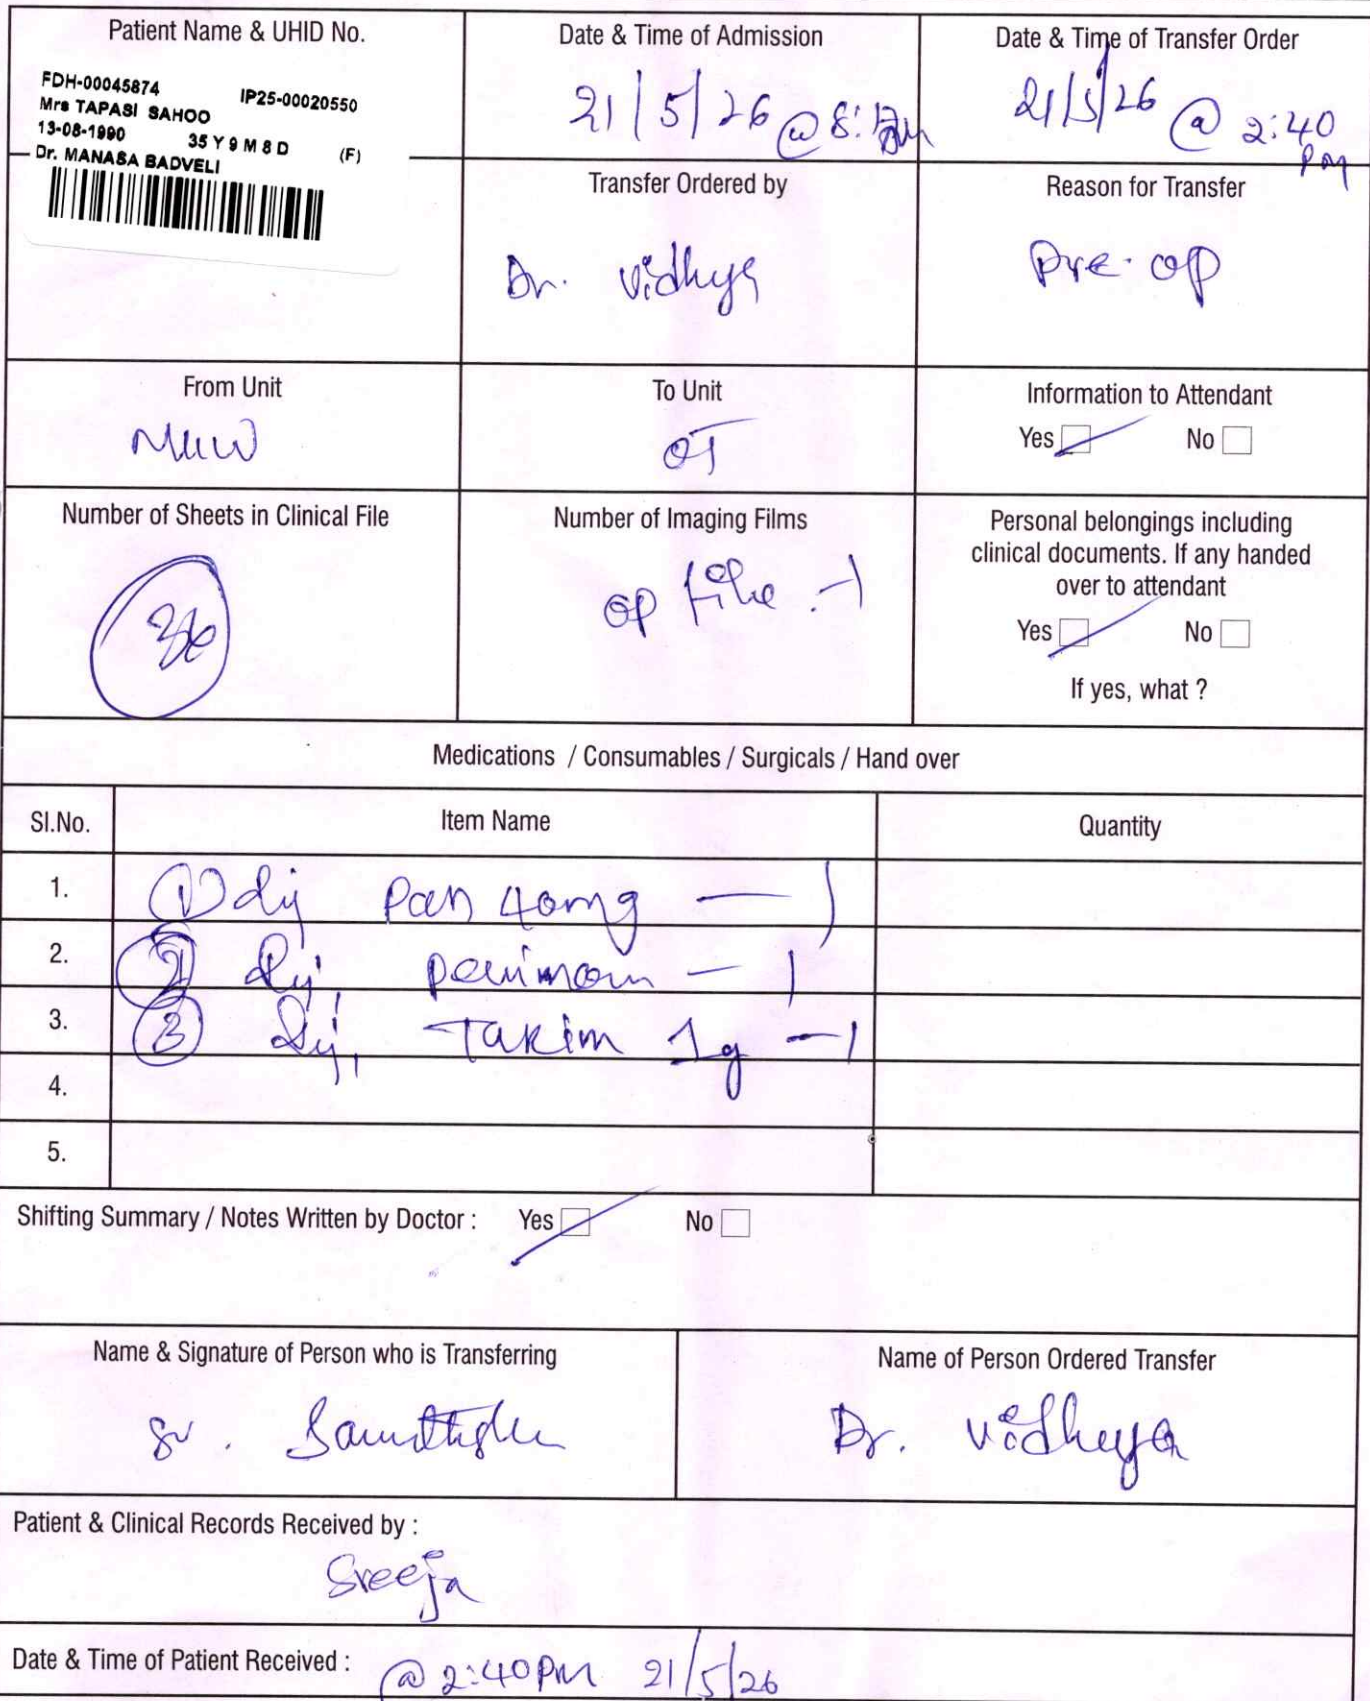 Patient Name & UHID No.
FDH-00045874 IP25-00020550
Mrs TAPASI SAHOO
13-08-1990 35 Y 9 M 8 D (F)
Dr. MANASA BADVELI
Date & Time of Admission
21/5/26 @ 8:
Date & Time of Transfer Order
21/5/26 @ 2:40
PM
Transfer Ordered by
Dr. Vidhya
Reason for Transfer
Pre-op
From Unit
To Unit
OT
Information to Attendant
Yes No
Number of Sheets in Clinical File
36
Number of Imaging Films
op file - 1
Personal belongings including
clinical documents. If any handed
over to attendant
Yes No
If yes, what ?
Medications / Consumables / Surgicals / Hand over
Sl.No. Item Name Quantity
1. ① Inj Pan 40mg — 1
2. ② Inj. — 1
3. ③ Inj. Takim 1g — 1
4.
5.
Shifting Summary / Notes Written by Doctor : Yes No
Name & Signature of Person who is Transferring
Sr.
Name of Person Ordered Transfer
Dr. Vidhya
Patient & Clinical Records Received by :
Sreeja
Date & Time of Patient Received : @ 2:40PM 21/5/26